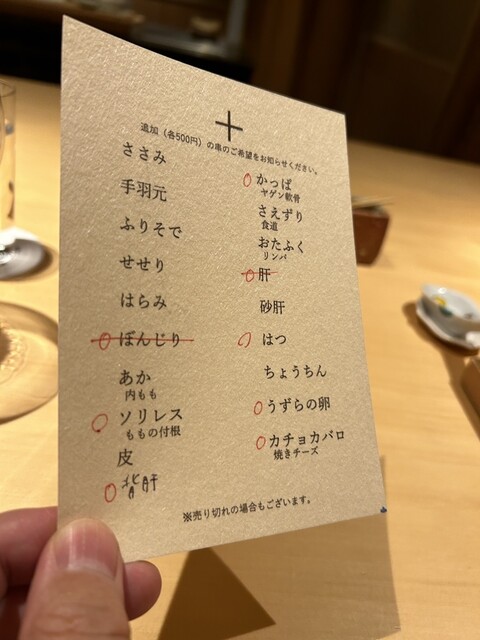 十
追加（各500円）の串のご希望をお知らせください。
ささみ
手羽元
ふりそで
せせり
はらみ
ぼんじり
あか
内もも
ソリレス
ももの付根
皮
背肝
かっぱ
ヤゲン軟骨
さえずり
食道
おたふく
リンパ
肝
砂肝
はつ
ちょうちん
うずらの卵
カチョカバロ
焼きチーズ
※売り切れの場合もございます。